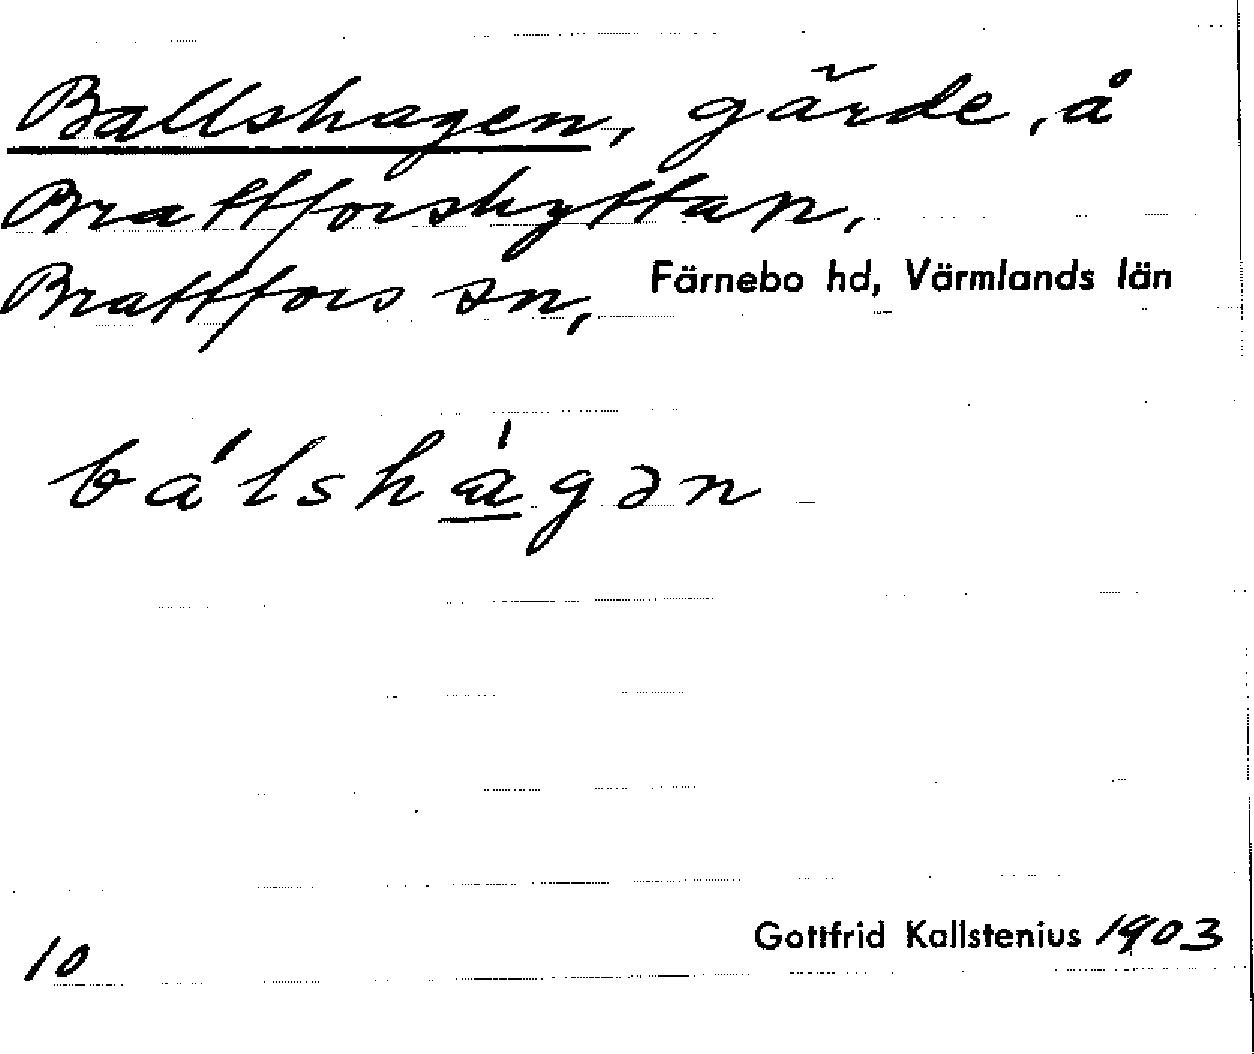 Ballshagen, gärde, å
Brattforshyttan,
Brattfors sn, Färnebo hd, Värmlands län
bálshágən
10 Gottfrid Kallstenius 1903